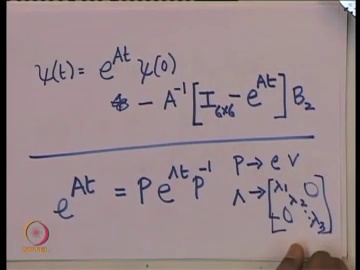 ψ(t) = e^{At} ψ(0)
- A^{-1} [I_{6×6} - e^{At}] B_2
e^{At} = P e^{Λt} P^{-1}
P → e v
Λ → [λ_1 0
λ_2
0 ⋱ λ_3]